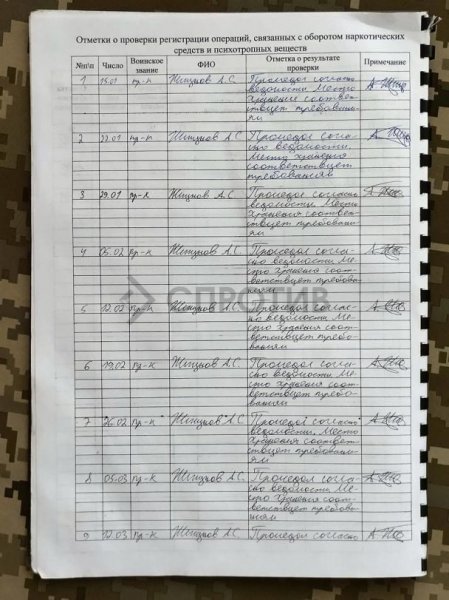 Отметки о проверки регистрации операций, связанных с оборотом наркотических
средств и психотропных веществ
№п\п Число Воинское звание ФИО Отметка о результате проверки Примечание
1 15.01 пр-к А.С. Проведол согласно
ведомости. Место
хранения соответ-
ствует требовани-
ям
2 22.01 пр-к А.С. Проведол согла-
сно ведомости.
Место хранения
соответствует
требованиям
3 29.01 пр-к А.С. Проведол согласно
ведомости. Место
хранения соответ-
ствует требовани-
ям
4 05.02 пр-к А.С. Проведол согла-
сно ведомости Ме-
сто хранения соот-
ветствует требова-
ниям
СПРОТИВ
5 12.02 пр-к А.С. Проведол соглас-
но ведомости Ме-
сто хранения соот-
ветствует требо-
ваниям
6 19.02 пр-к А.С. Проведол согла-
сно ведомости Ме-
сто хранения соот-
ветствует требо-
ваниям
7 26.02 пр-к А.С. Проведол соглас-
но ведомости. Место
хранения соответ-
ствует требовани-
ям
8 05.03 пр-к А.С. Проведол согла-
сно ведомости Ме-
сто хранения соот-
ветствует требова-
ниям
9 12.03 пр-к А.С. Проведол согласно